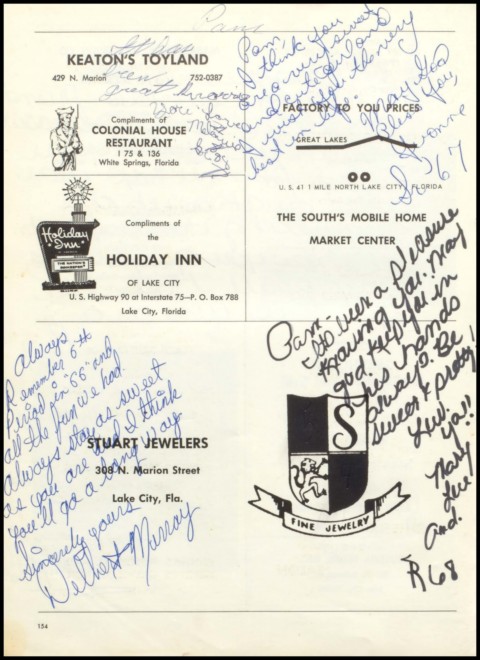 Pam
It has
been
great knowing
KEATON'S TOYLAND
429 N. Marion 752-0387
Compliments of
COLONIAL HOUSE
RESTAURANT
I 75 & 136
White Springs, Florida
Holiday
Inn
THE NATION'S
INNKEEPER
Compliments of
the
HOLIDAY INN
OF LAKE CITY
U. S. Highway 90 at Interstate 75—P. O. Box 788
Lake City, Florida
Pam,
I think you
are a very sweet
and cute girl and
I wish you the very
best in life.
May God
Bless You,
Yvonne
Sr. '67
FACTORY TO YOU PRICES
GREAT LAKES
U. S. 41 1 MILE NORTH LAKE CITY, FLORIDA
THE SOUTH'S MOBILE HOME
MARKET CENTER
Always
Remember 6th
Period in "66" and
all the fun we had.
Always stay as sweet
as you are and I think
you'll go a long way
Sincerely yours
Delbert Murray
STUART JEWELERS
308 N. Marion Street
Lake City, Fla.
Pam-
It's been a pleasure
knowing you. May
god keep you in
his hands
always. Be
sweet & pretty!
Luv.
ya!!
Mary
Lue
And.
R 68
S
FINE JEWELRY
154